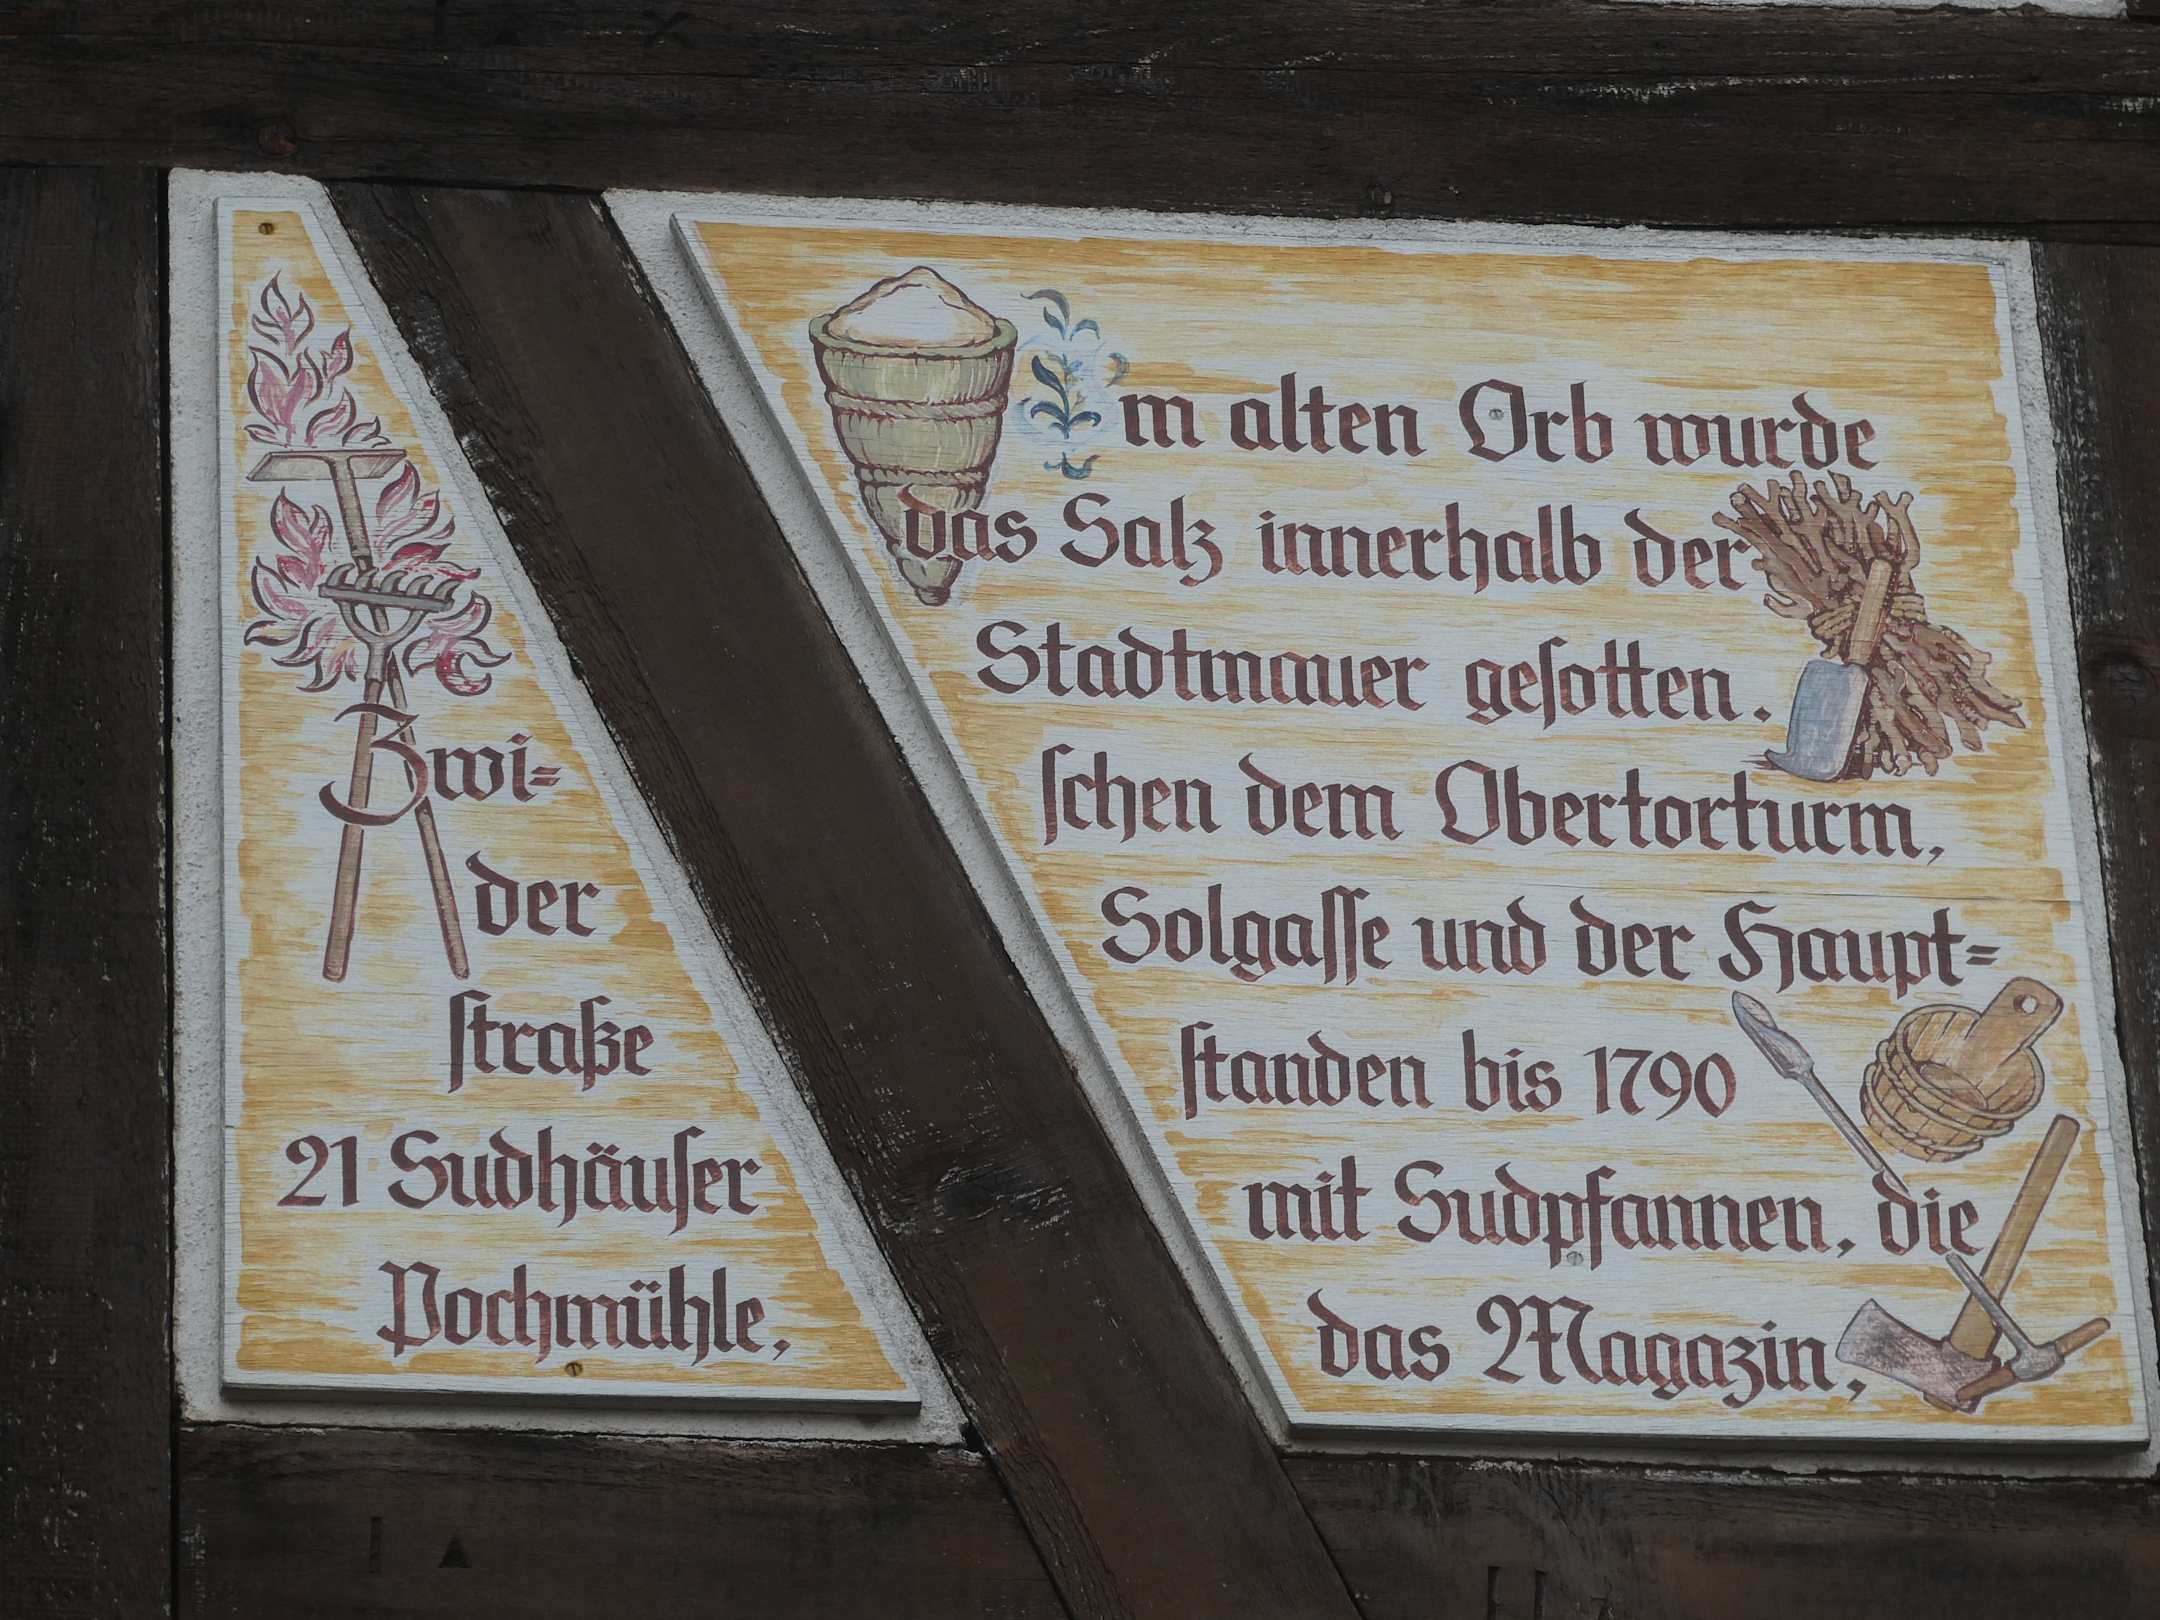 Im alten Orb wurde
das Salz innerhalb der
Stadtmauer gesotten.
Zwi= schen dem Obertorturm,
der Solgasse und der Haupt=
straße standen bis 1790
21 Sudhäuser mit Sudpfannen, die
Pochmühle, das Magazin,